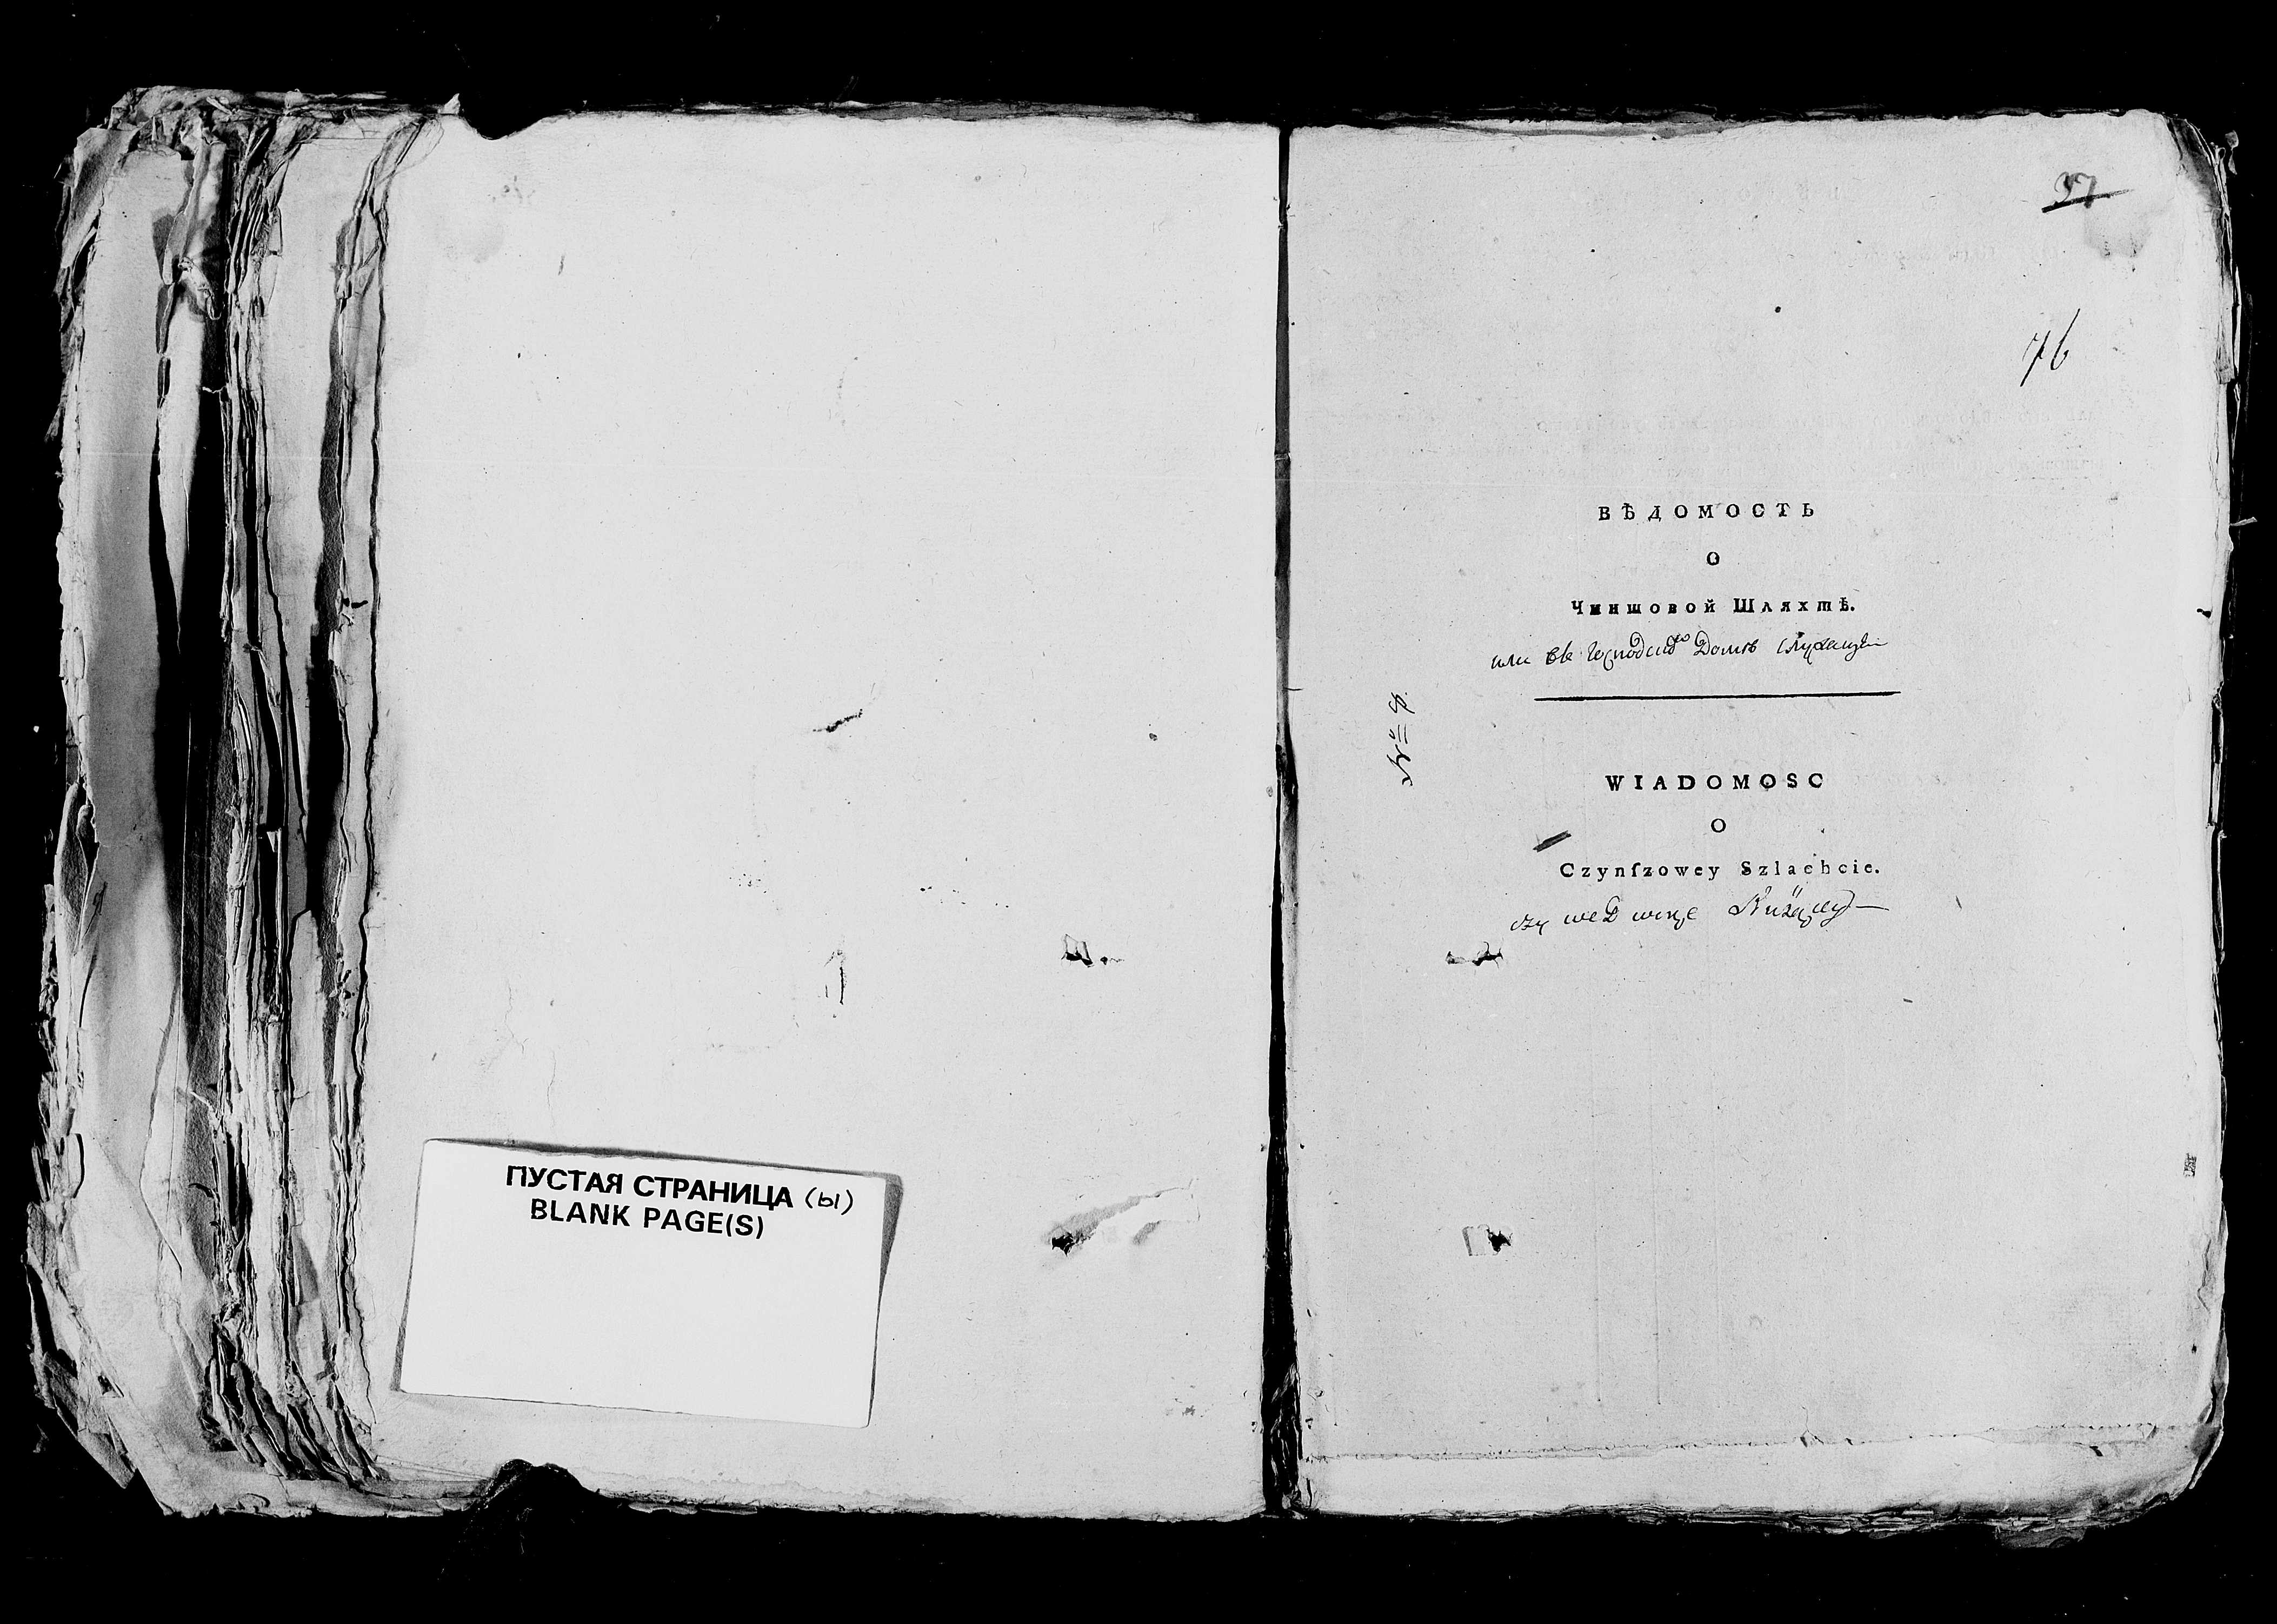 ПУСТАЯ СТРАНИЦА (ы)
BLANK PAGE(S)
37
76
ВѢДОМОСТЬ
О
Чиншовой Шляхтѣ.
или въ Господск Домѣ служащей
WIADOMOSC
O
Czynſzowey Szlachcie.
czy we Dworze Służącey